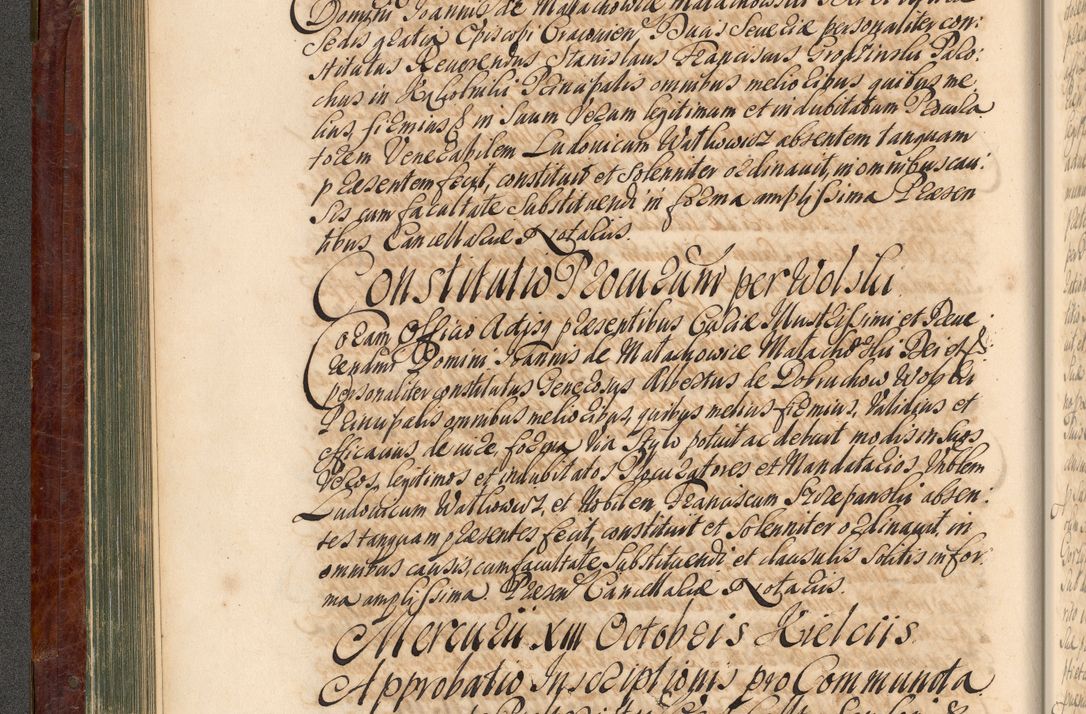 Domini Joannis de Małachowice Małachowski Dei et Aplicae
Sedis gratia Episcopi Cracovien, Ducis Severiae personaliter con:
stitutus Reverendus Stanislaus Franciscus Gropzinski Paro:
chus in Principalis omnibus melioribus quibus me
lius, firmius & in suum Verum legitimum et indubitatum Procura
torem Venerabilem Ludovicum Wathowicz absentem tanquam
praesentem fecit, constituit et solenniter ordinavit, in omnibus cau:
sis cum facultate substituendi in forma amplissima Praesen
tibus Cancellariae Notariis.
Constitutio Procurum per Wolski
Coram Officio Actisq praesentibus Curiae Illustrissimi et Reve
rendmi Domini Joannis de Małachowice Małachowski Dei et &
personaliter constitutus Generosus Albertus de Dobrachow Wolski
Principalis omnibus melioribus, quibus melius firmius, validius et
efficacius, de iure, forma Via Stylo potuit ac debuit modis in suos
Veros, legitimos et indubitatos Procuratores et Mandatarios, Vnblem
Ludovicum Wathowicz, et Nobilem Franciscum Szczepanski absen:
tes tanquam praesentes fecit, constituit et solenniter ordinavit, in
omnibus causis, cum facultate substituendi et clausulis solitis in for:
ma amplissima. Praesen Cancellariae Notariis.
Mercurii XIII Octobris Kielciis
Approbatio Inscriptionis pro Communita